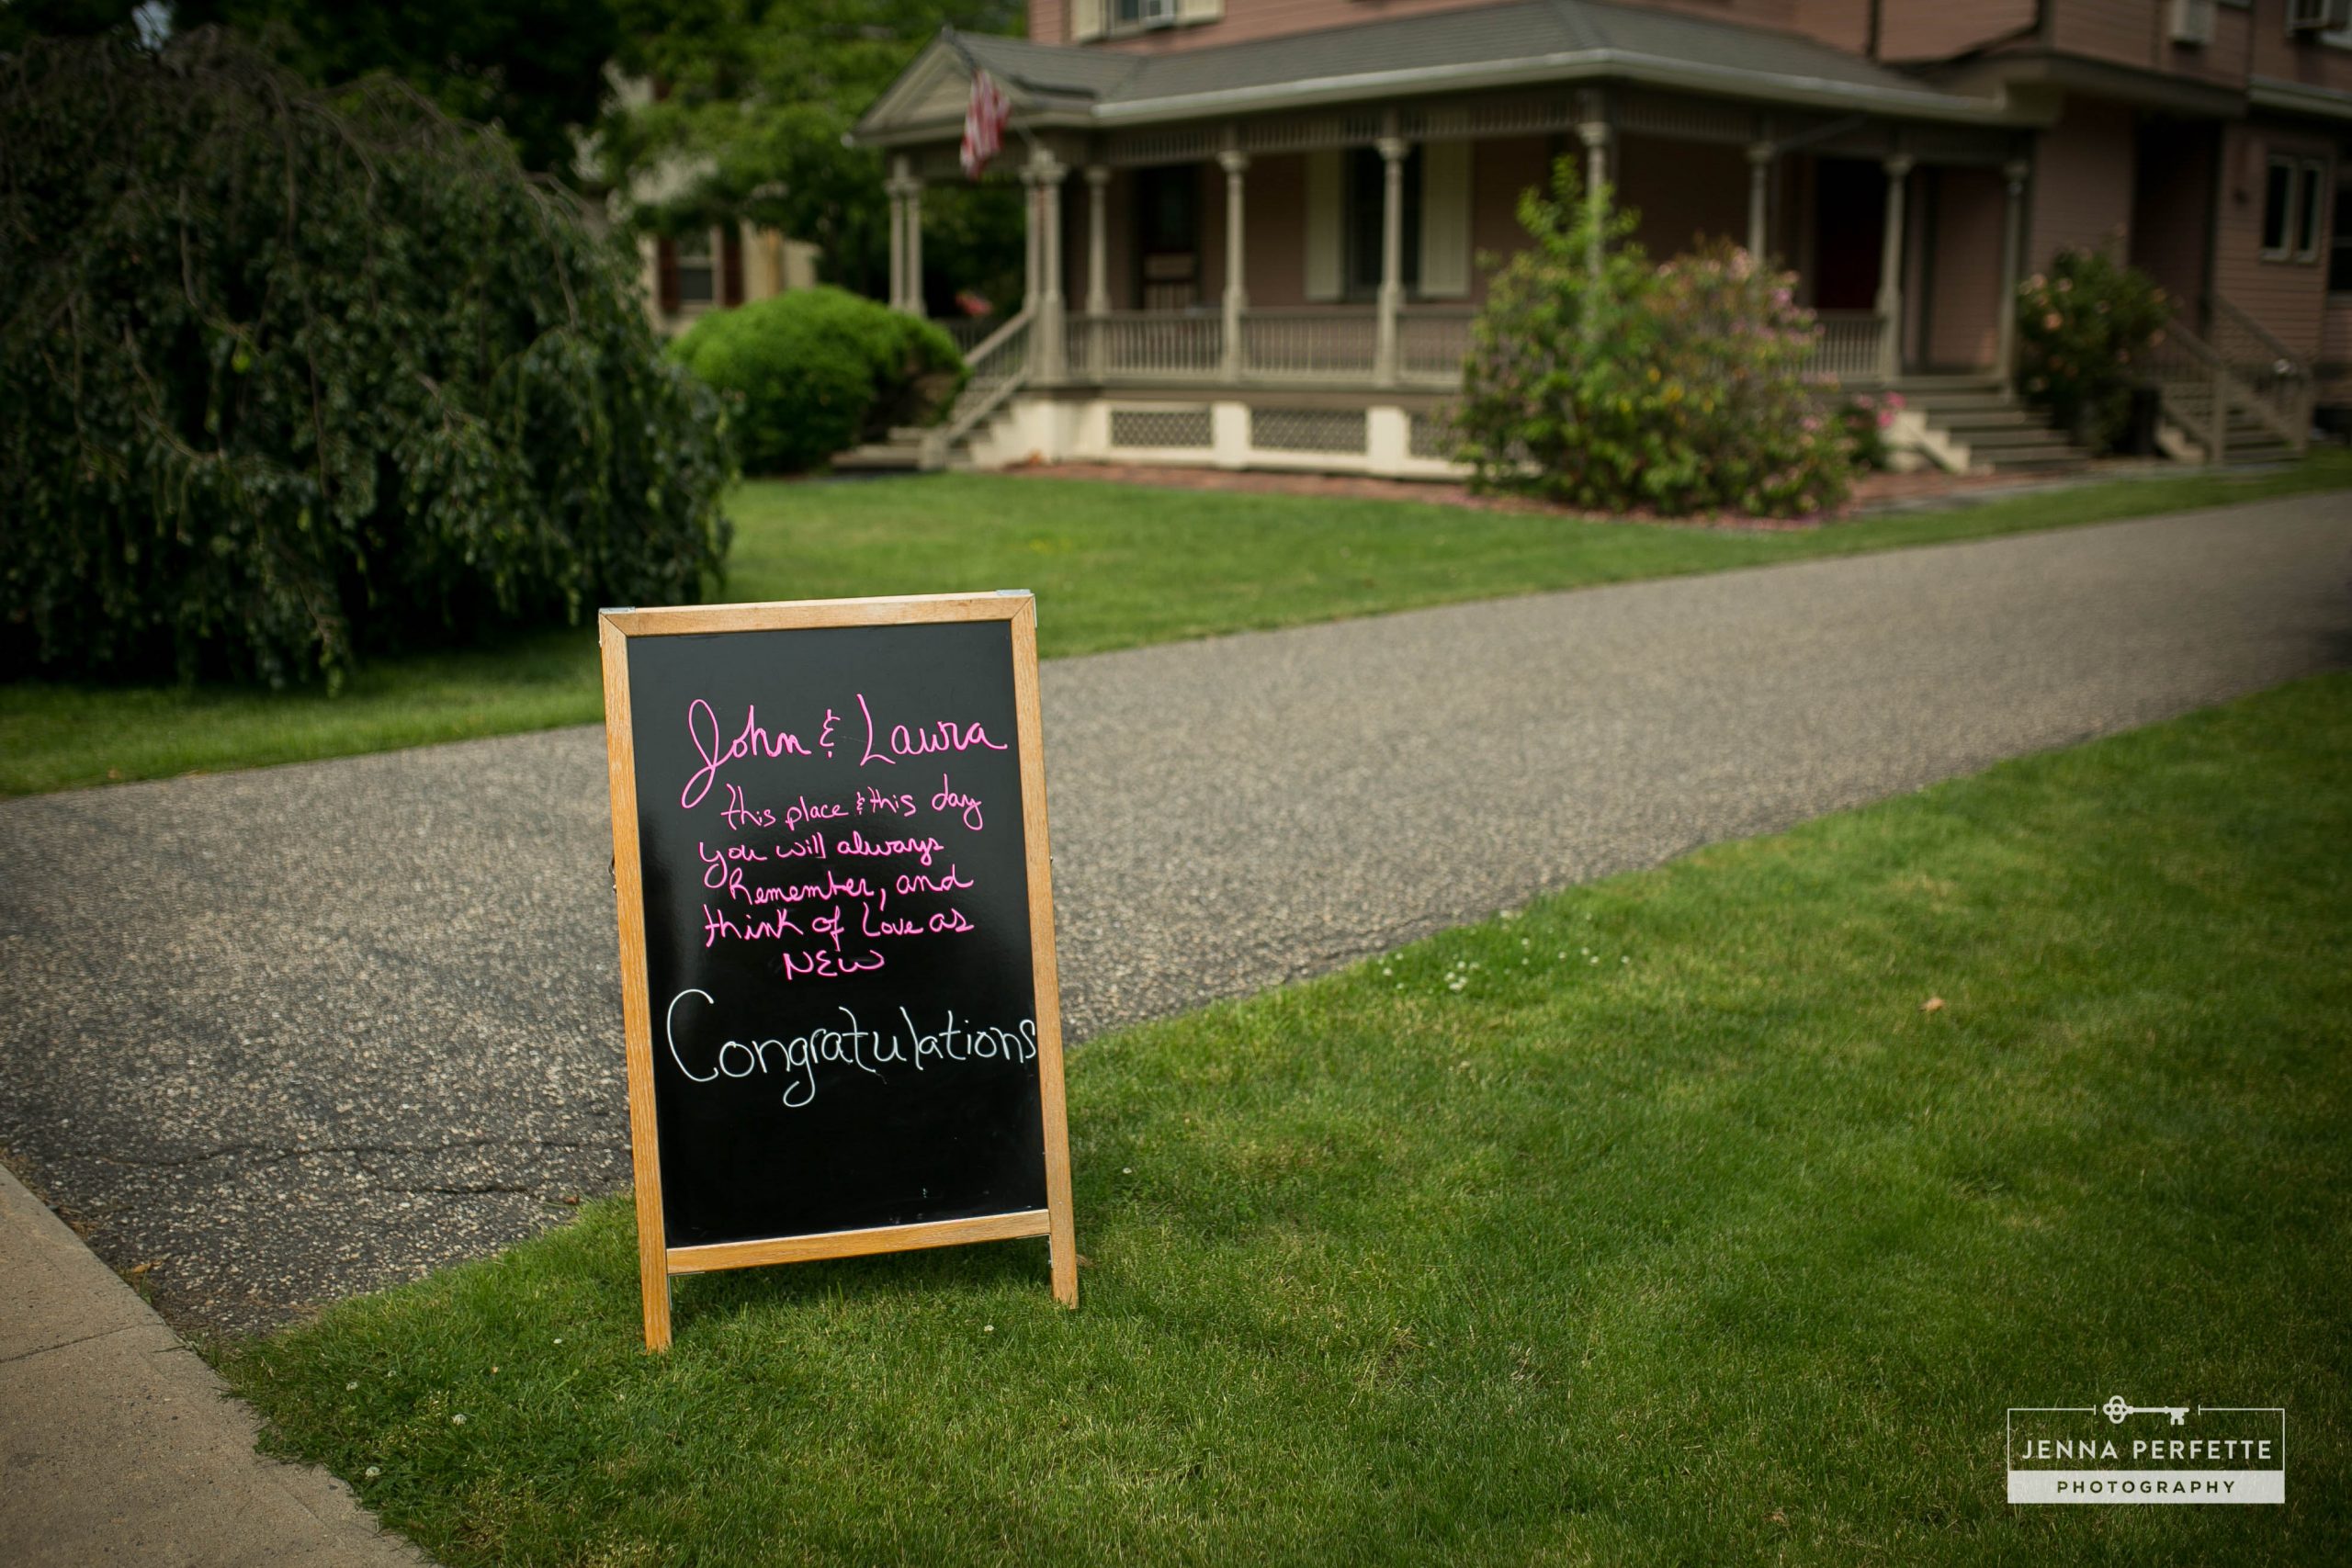 John & Laura
this place & this day
you will always
Remember, and
think of Love as
NEW
Congratulations
JENNA PERFETTE
PHOTOGRAPHY